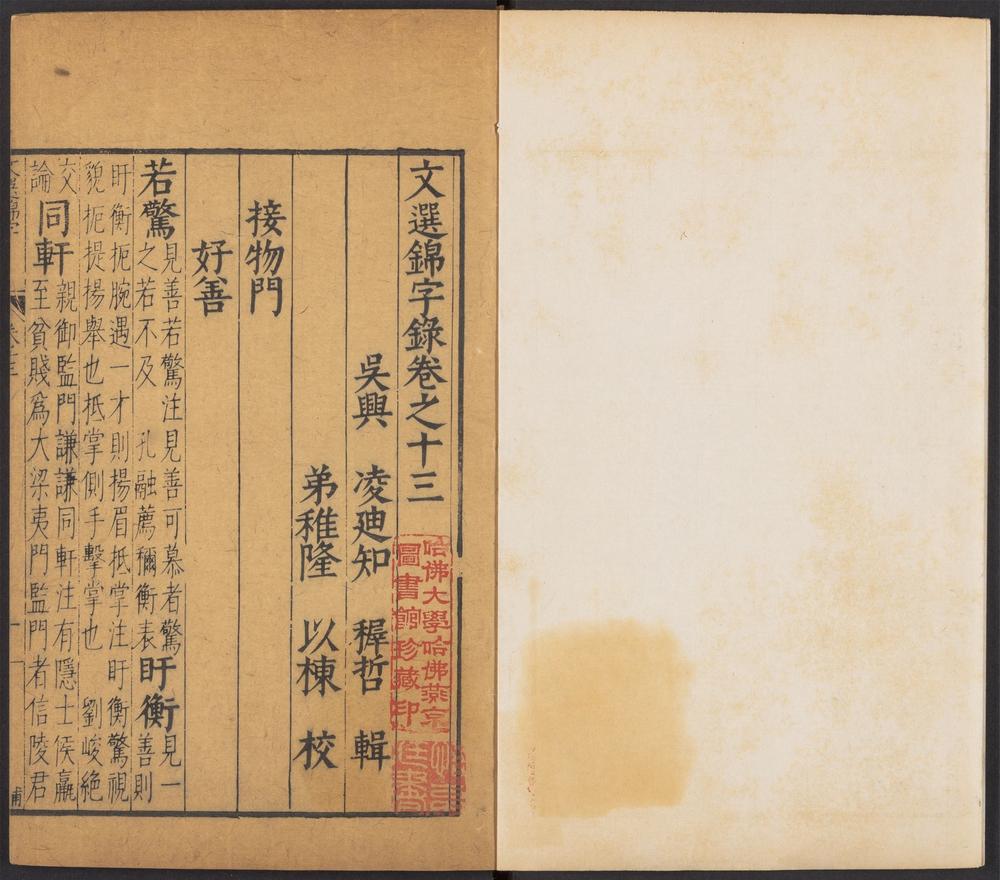 文選錦字錄卷之十三
吳興 凌廸知 穉哲 輯
弟稚隆 以棟 校
接物門
好善
若驚見善若驚注見善可慕者驚
之若不及 孔融薦禰衡表盱衡見一
善則
盱衡扼腕遇一才則揚眉抵掌注盱衡驚視
貌扼提揚舉也抵掌側手擊掌也 劉峻絕
交論同軒親御監門謙謙同軒注有隱士侯嬴
至貧賤爲大梁夷門監門者信陵君
哈佛大學哈佛燕京
圖書館珍藏印